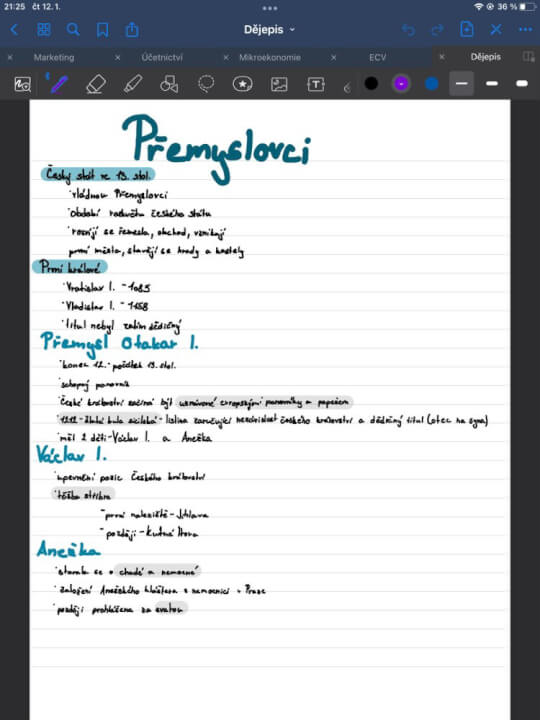 21:25 čt 12. 1.
36 %
Dějepis
Marketing
Účetnictví
Mikroekonomie
ECV
Dějepis
Přemyslovci
Český stát ve 13. stol.
• vládnou Přemyslovci
• Období rozkvětu českého státu
• rozvíjí se řemesla, obchod, vznikají
první města, stavějí se hrady a kostely
První králové
• Vratislav I. - 1085
• Vladislav I. - 1158
• titul nebyl zatím dědičný
Přemysl Otakar I.
• konec 12. - počátek 13. stol.
• schopný panovník
• České království začíná být uznávané evropskými panovníky a papežem
• 1212 - zlatá bula sicilská - listina zaručující nezávislost českého království a dědičný titul (otec na syna)
• měl 2 děti - Václav I. a Anežka
Václav I.
• upevnění pozic Českého království
• těžba stříbra
- první naleziště - Jihlava
- později - Kutná Hora
Anežka
• starala se o chudé a nemocné
• založení Anežského kláštera s nemocnicí v Praze
• později prohlášena za svatou